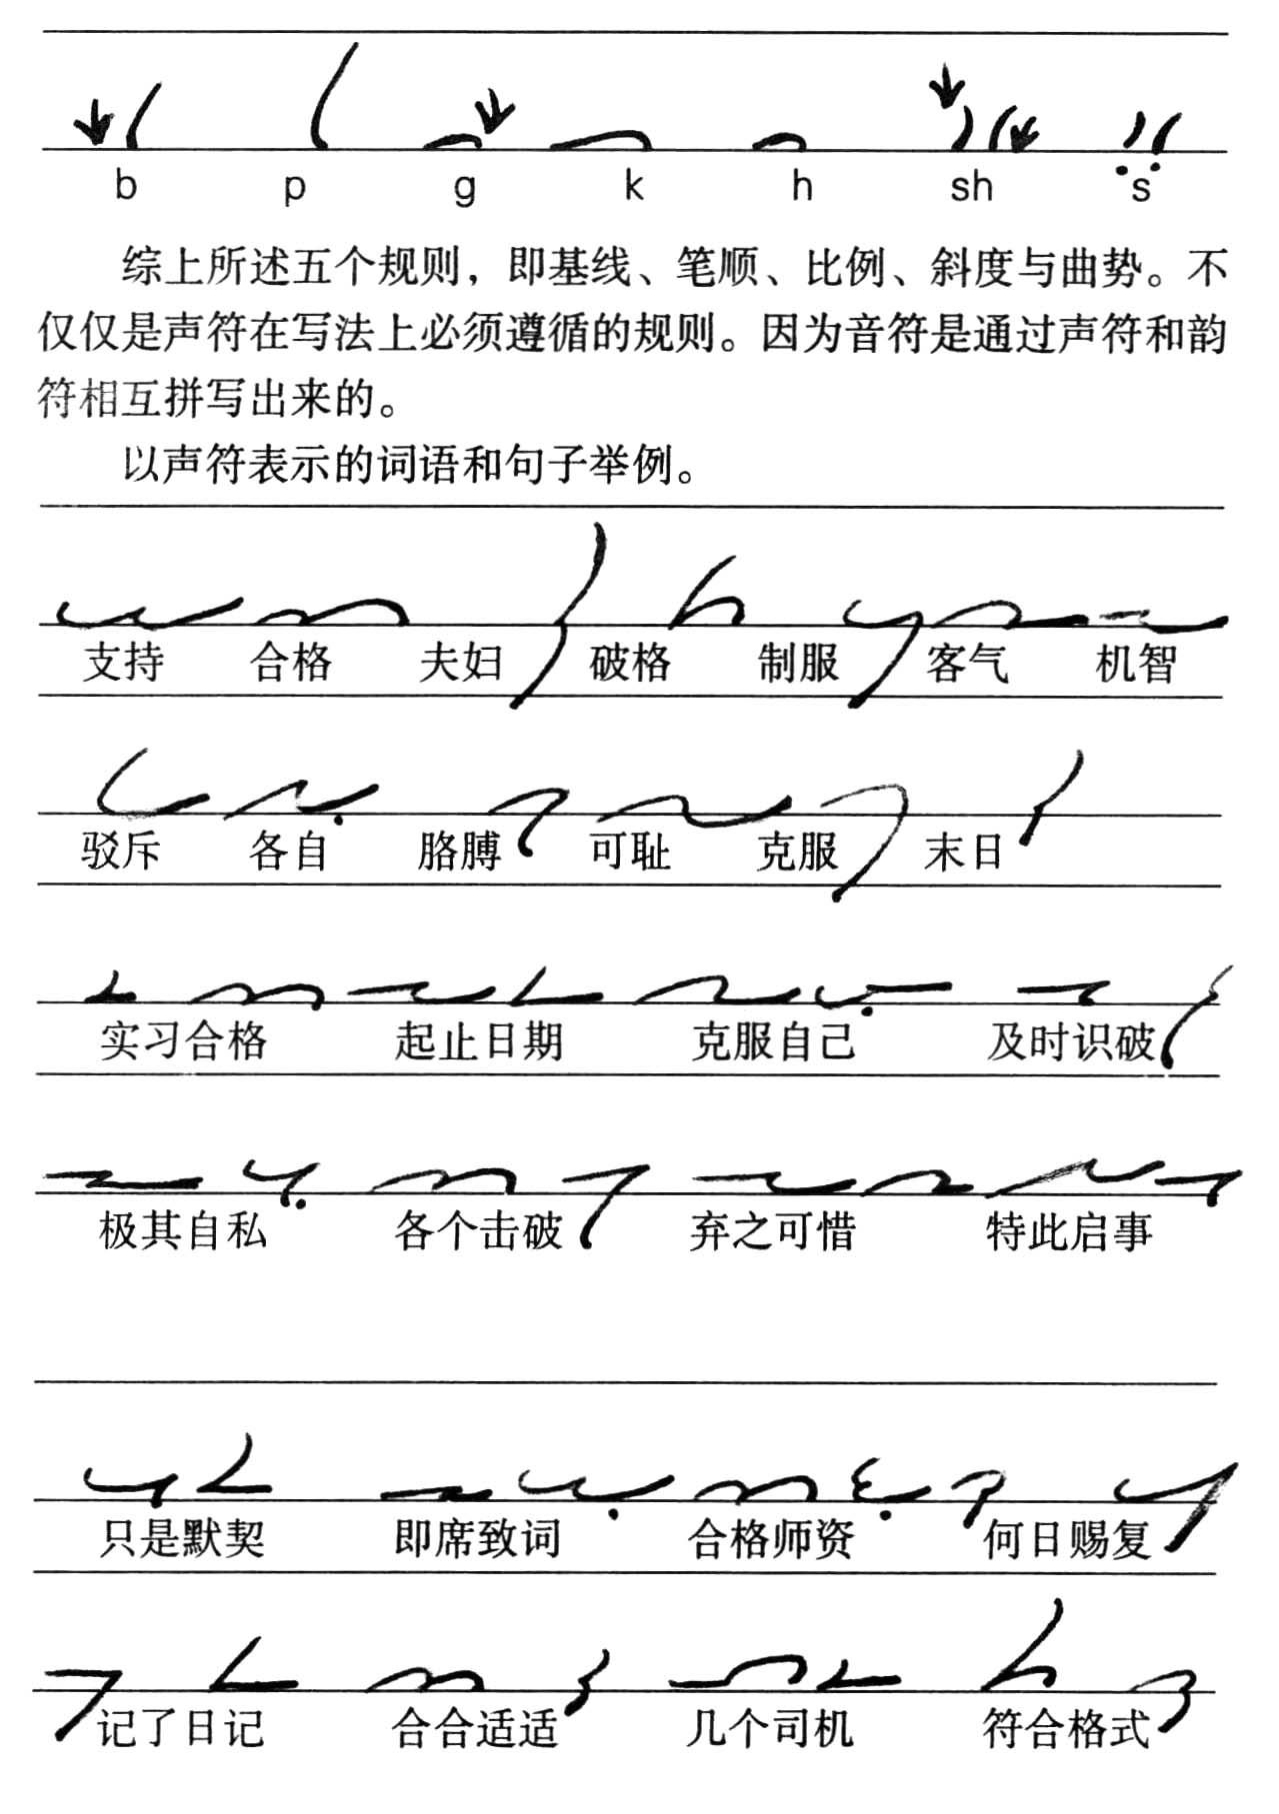 b p g k h sh s
综上所述五个规则，即基线、笔顺、比例、斜度与曲势。不
仅仅是声符在写法上必须遵循的规则。因为音符是通过声符和韵
符相互拼写出来的。
以声符表示的词语和句子举例。
支持 合格 夫妇 破格 制服 客气 机智
驳斥 各自 胳膊 可耻 克服 末日
实习合格 起止日期 克服自己 及时识破
极其自私 各个击破 弃之可惜 特此启事
只是默契 即席致词 合格师资 何日赐复
记了日记 合合适适 几个司机 符合格式